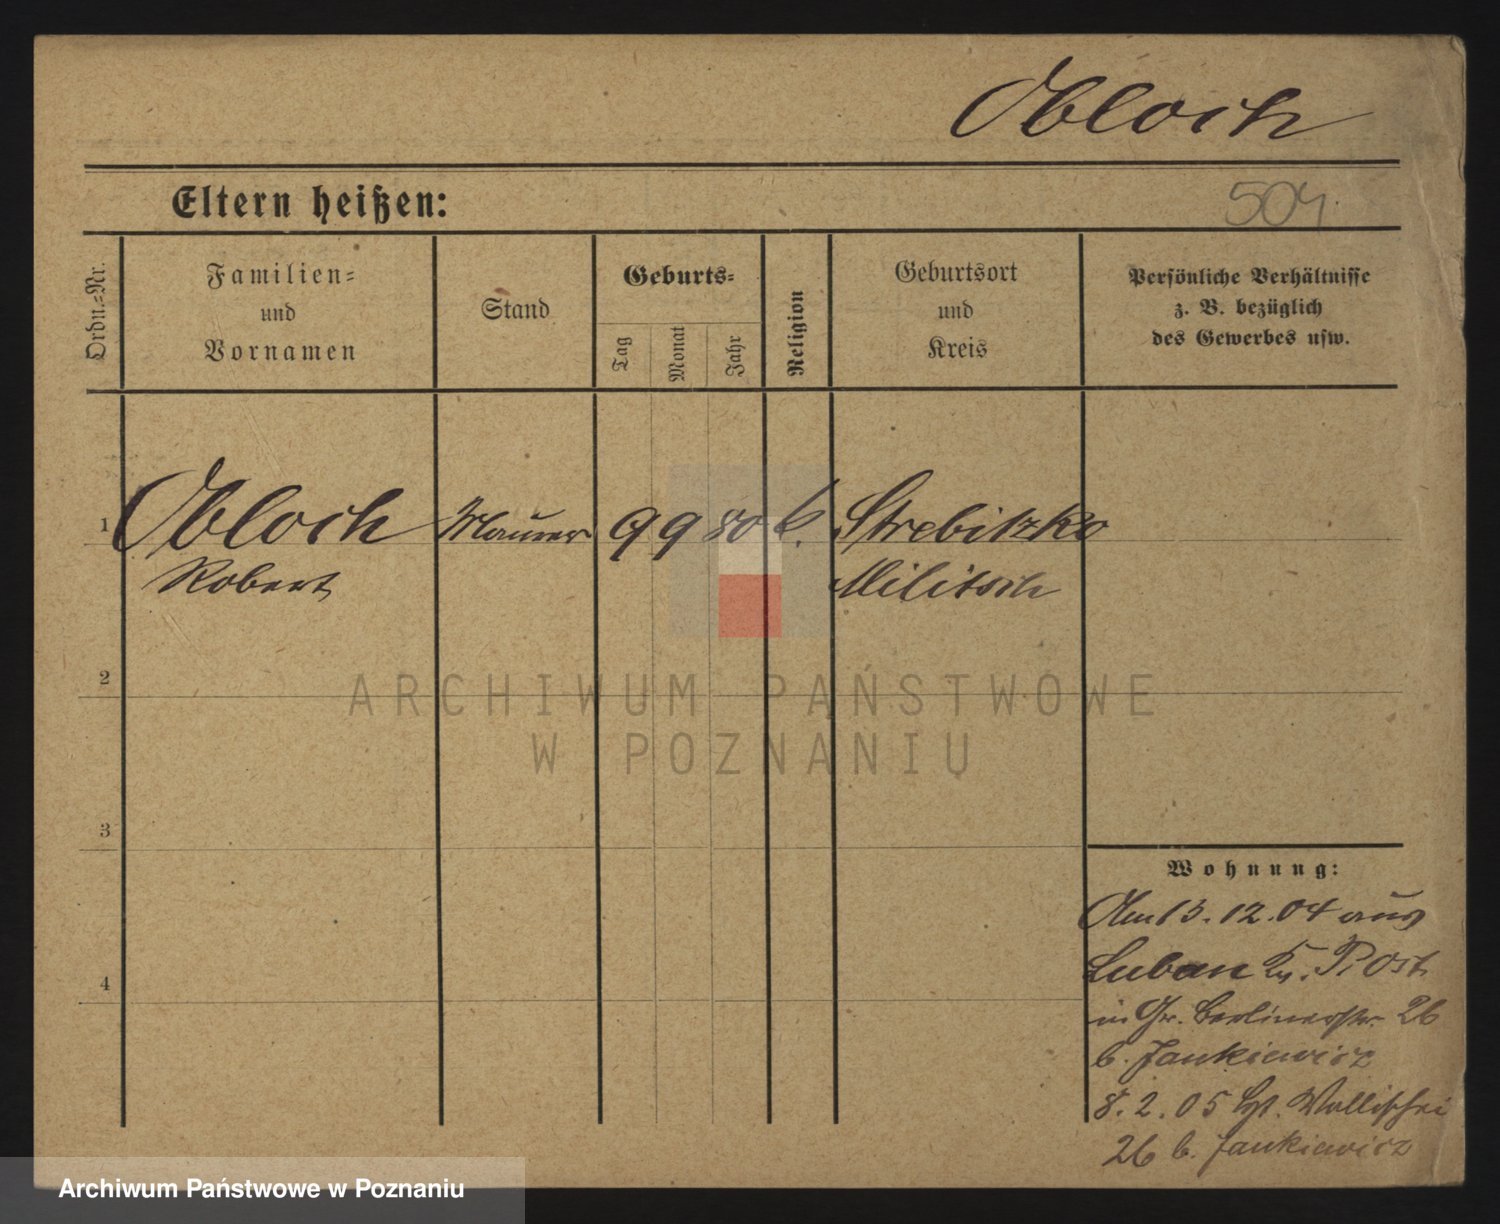 Obloch
Eltern heißen:
504.
Ordn.=Nr.
Familien=
und
Vornamen
Stand
Geburts=
Tag
Monat
Jahr
Religion
Geburtsort
und
Kreis
Persönliche Verhältnisse
z. B. bezüglich
des Gewerbes usw.
1 Obloch Maurer 9 9 80 k. Strebitzko
Robert Militsch
2
3
4
Wohnung:
Am 13.12.04 aus
Luban Kr. P. Ost
in Gr. Berlinerstr. 26
b. Jankiewicz
8.2.05 Wallischei
26 b. Jankiewicz
ARCHIWUM PAŃSTWOWE
W POZNANIU
Archiwum Państwowe w Poznaniu